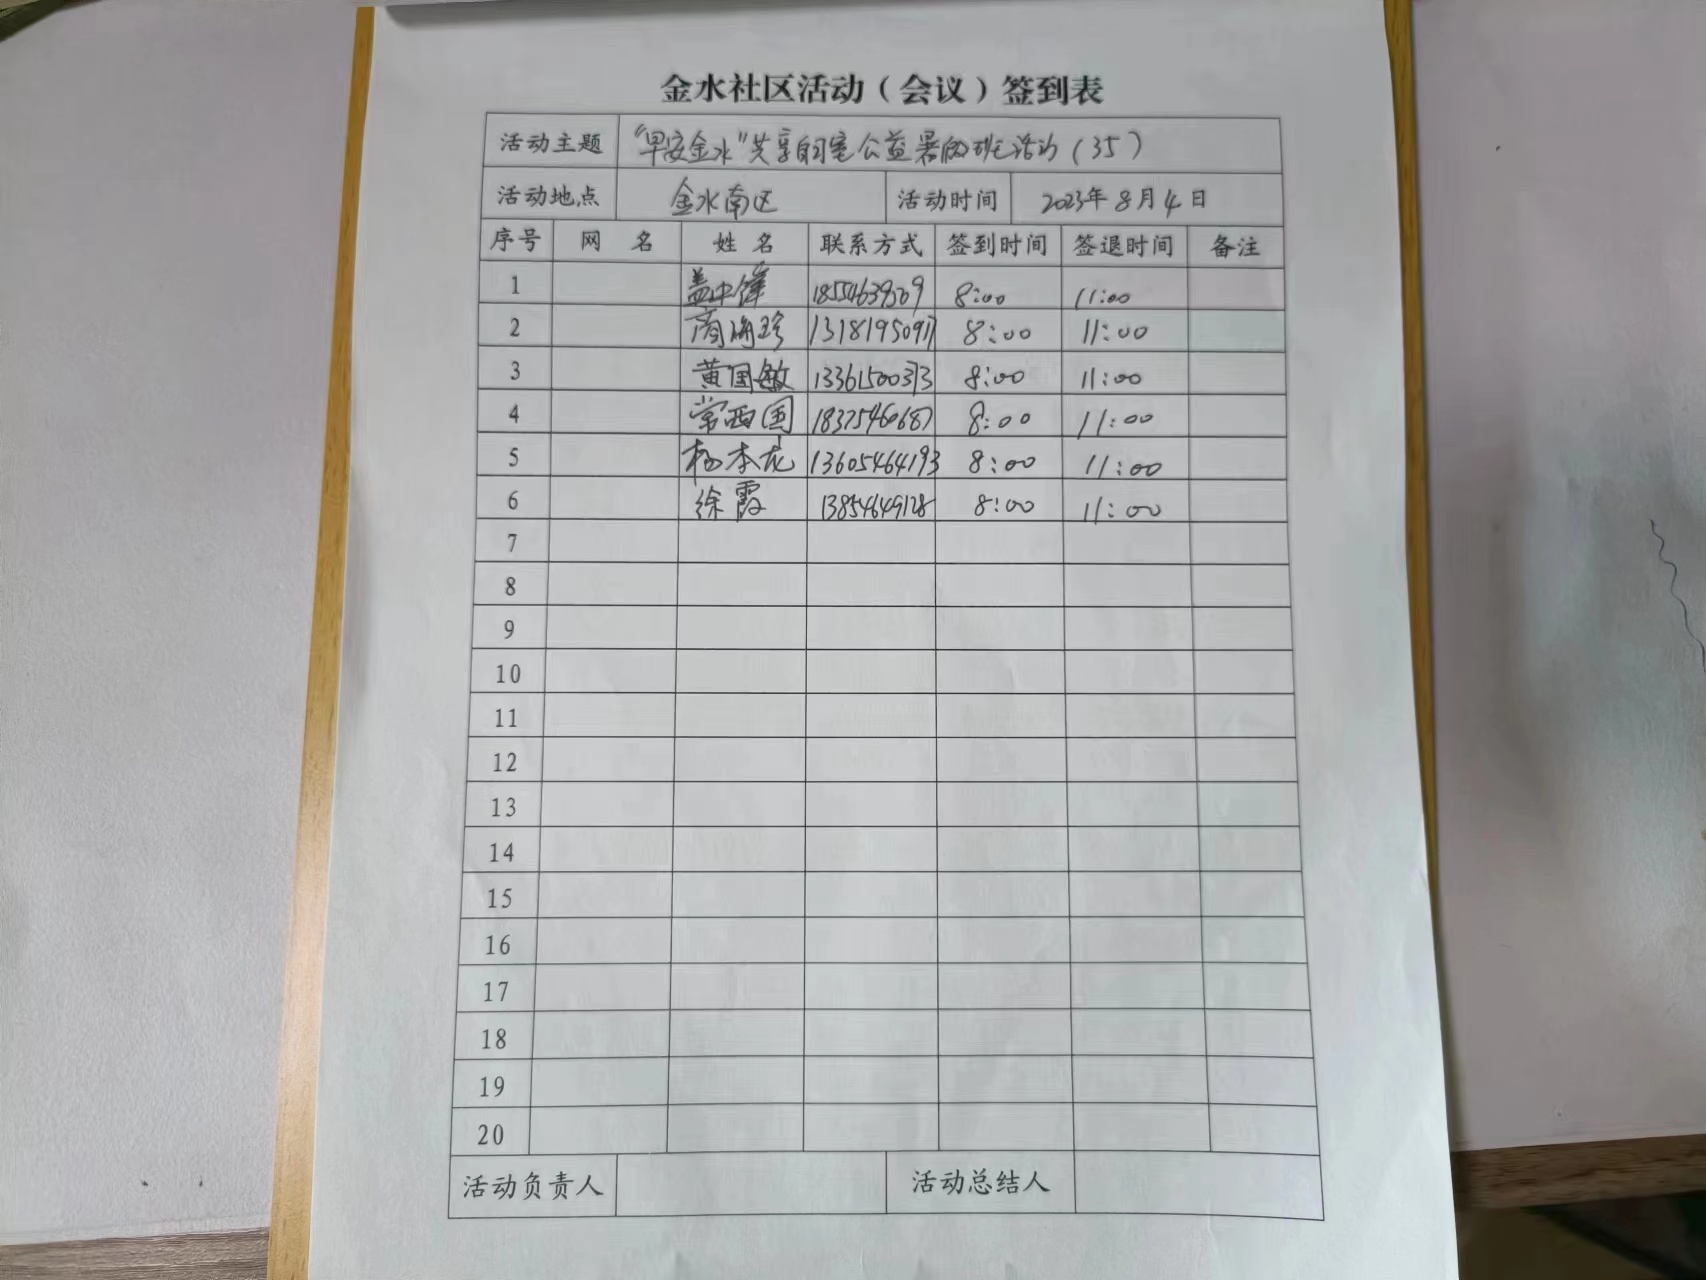 金水社区活动（会议）签到表
活动主题 "早安金水"共享自习室公益暑假班活动（35）
活动地点 金水南区 活动时间 2023年8月4日
序号 网名 姓名 联系方式 签到时间 签退时间 备注
1 盖中锋 8:00 11:00
2 商海珍 13181950917 8:00 11:00
3 黄国敏 13361500373 8:00 11:00
4 常西国 18375460687 8:00 11:00
5 杨本花 13605464193 8:00 11:00
6 徐霞 13854649128 8:00 11:00
7
8
9
10
11
12
13
14
15
16
17
18
19
20
活动负责人 活动总结人